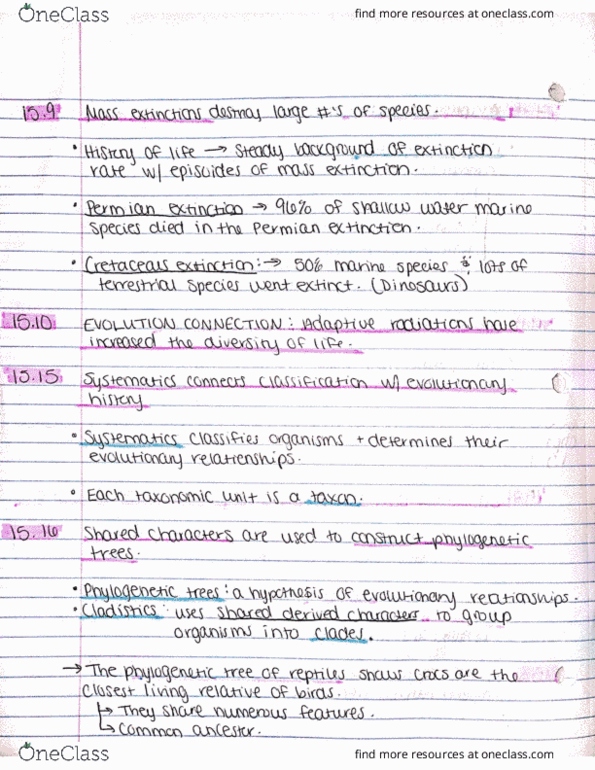 OneClass find more resources at oneclass.com
15.9 Mass extinctions destroy large #'s of species.
• History of life → steady background of extinction
rate w/ episodes of mass extinction.
• Permian extinction → 96% of shallow water marine
species died in the Permian extinction.
• Cretaceous extinction: → 50% marine species & lots of
terrestrial species went extinct. (Dinosaurs)
15.10 EVOLUTION CONNECTION: Adaptive radiations have
increased the diversity of life.
15.15 Systematics connects classification w/ evolutionary
history
• Systematics classifies organisms + determines their
evolutionary relationships.
• Each taxonomic unit is a taxon.
15.16 Shared characters are used to construct phylogenetic
trees.
• Phylogenetic trees: a hypothesis of evolutionary relationships.
• Cladistics: uses shared derived characters to group
organisms into clades.
→ The phylogenetic tree of reptiles shows crocs are the
closest living relative of birds.
↳ They share numerous features.
↳ Common ancestor.
OneClass find more resources at oneclass.com